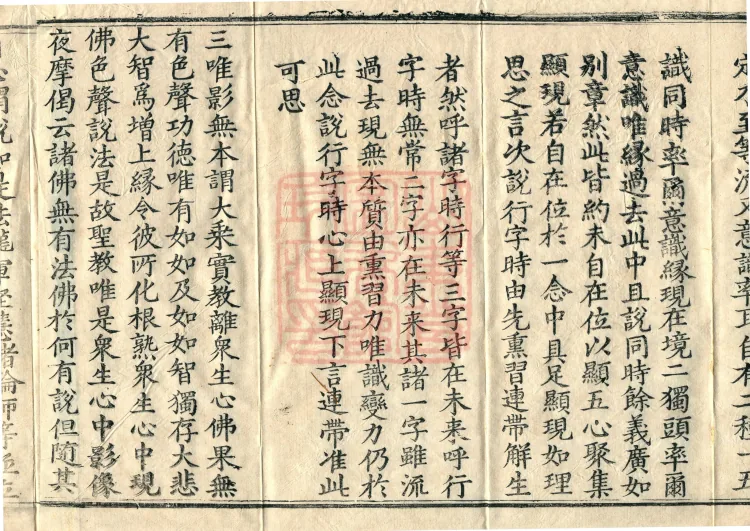 定不至等流又意識率耳自有二種一五
識同時率爾意識緣現在境二獨頭率爾
意識唯緣過去此中且說同時餘義廣如
別章然此皆約未自在位以顯五心聚集
顯現若自在位於一念中具足顯現如理
思之言次說行字時由先熏習連帶解生
者然呼諸字時行等三字皆在未來呼行
字時無常二字亦在未来其諸一字雖流
過去現無本質由熏習力唯識變力仍於
此念說行字時心上顯現下言連帶准此
可思
三唯影無本謂大乘實教離衆生心佛果無
有色聲功德唯有如如及如如智獨存大悲
大智爲增上緣令彼所化根熟衆生心中現
佛色聲說法是故聖教唯是衆生心中影像
夜摩偈云諸佛無有法佛於何有說但隨其